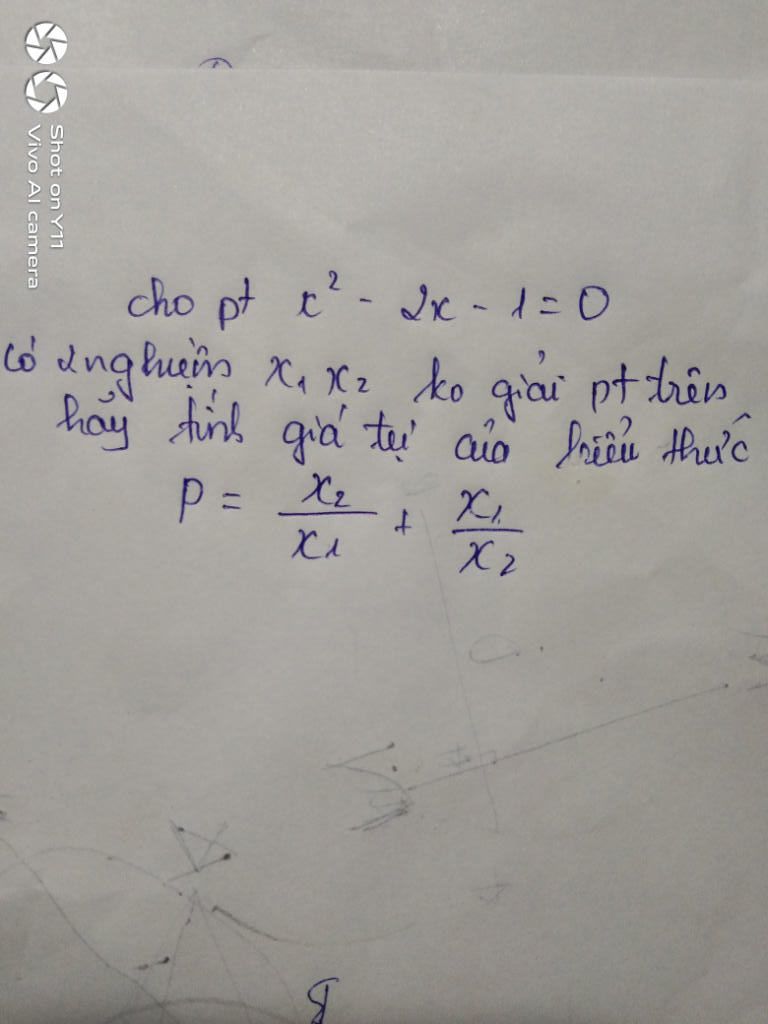 Shot on Y11
Vivo AI camera
cho pt x² - 2x - 1 = 0
có 2 nghiệm x₁ x₂ ko giải pt trên
hãy tính giá trị của biểu thức
P = x₂/x₁ + x₁/x₂